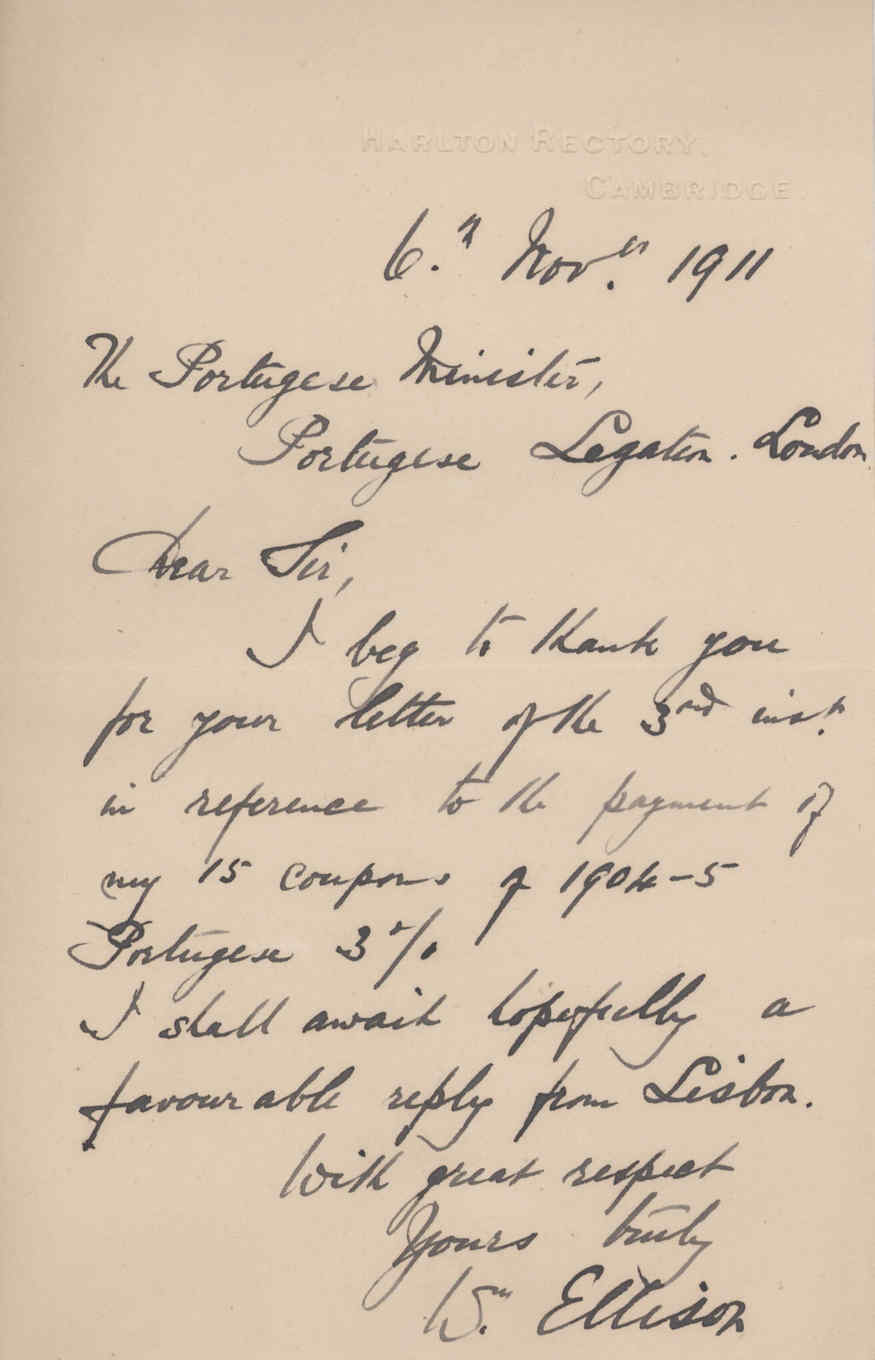 HARLTON RECTORY,
CAMBRIDGE.
6.th Nov.er 1911
The Portugese Minister,
Portugese Legation. London
Dear Sir,
I beg to thank you
for your letter of the 3rd inst.
in reference to the payment of
my 15 coupons of 1904-5
Portugese 3%
I shall await hopefully a
favourable reply from Lisbon.
With great respect
Yours truly
Wm. Ellison